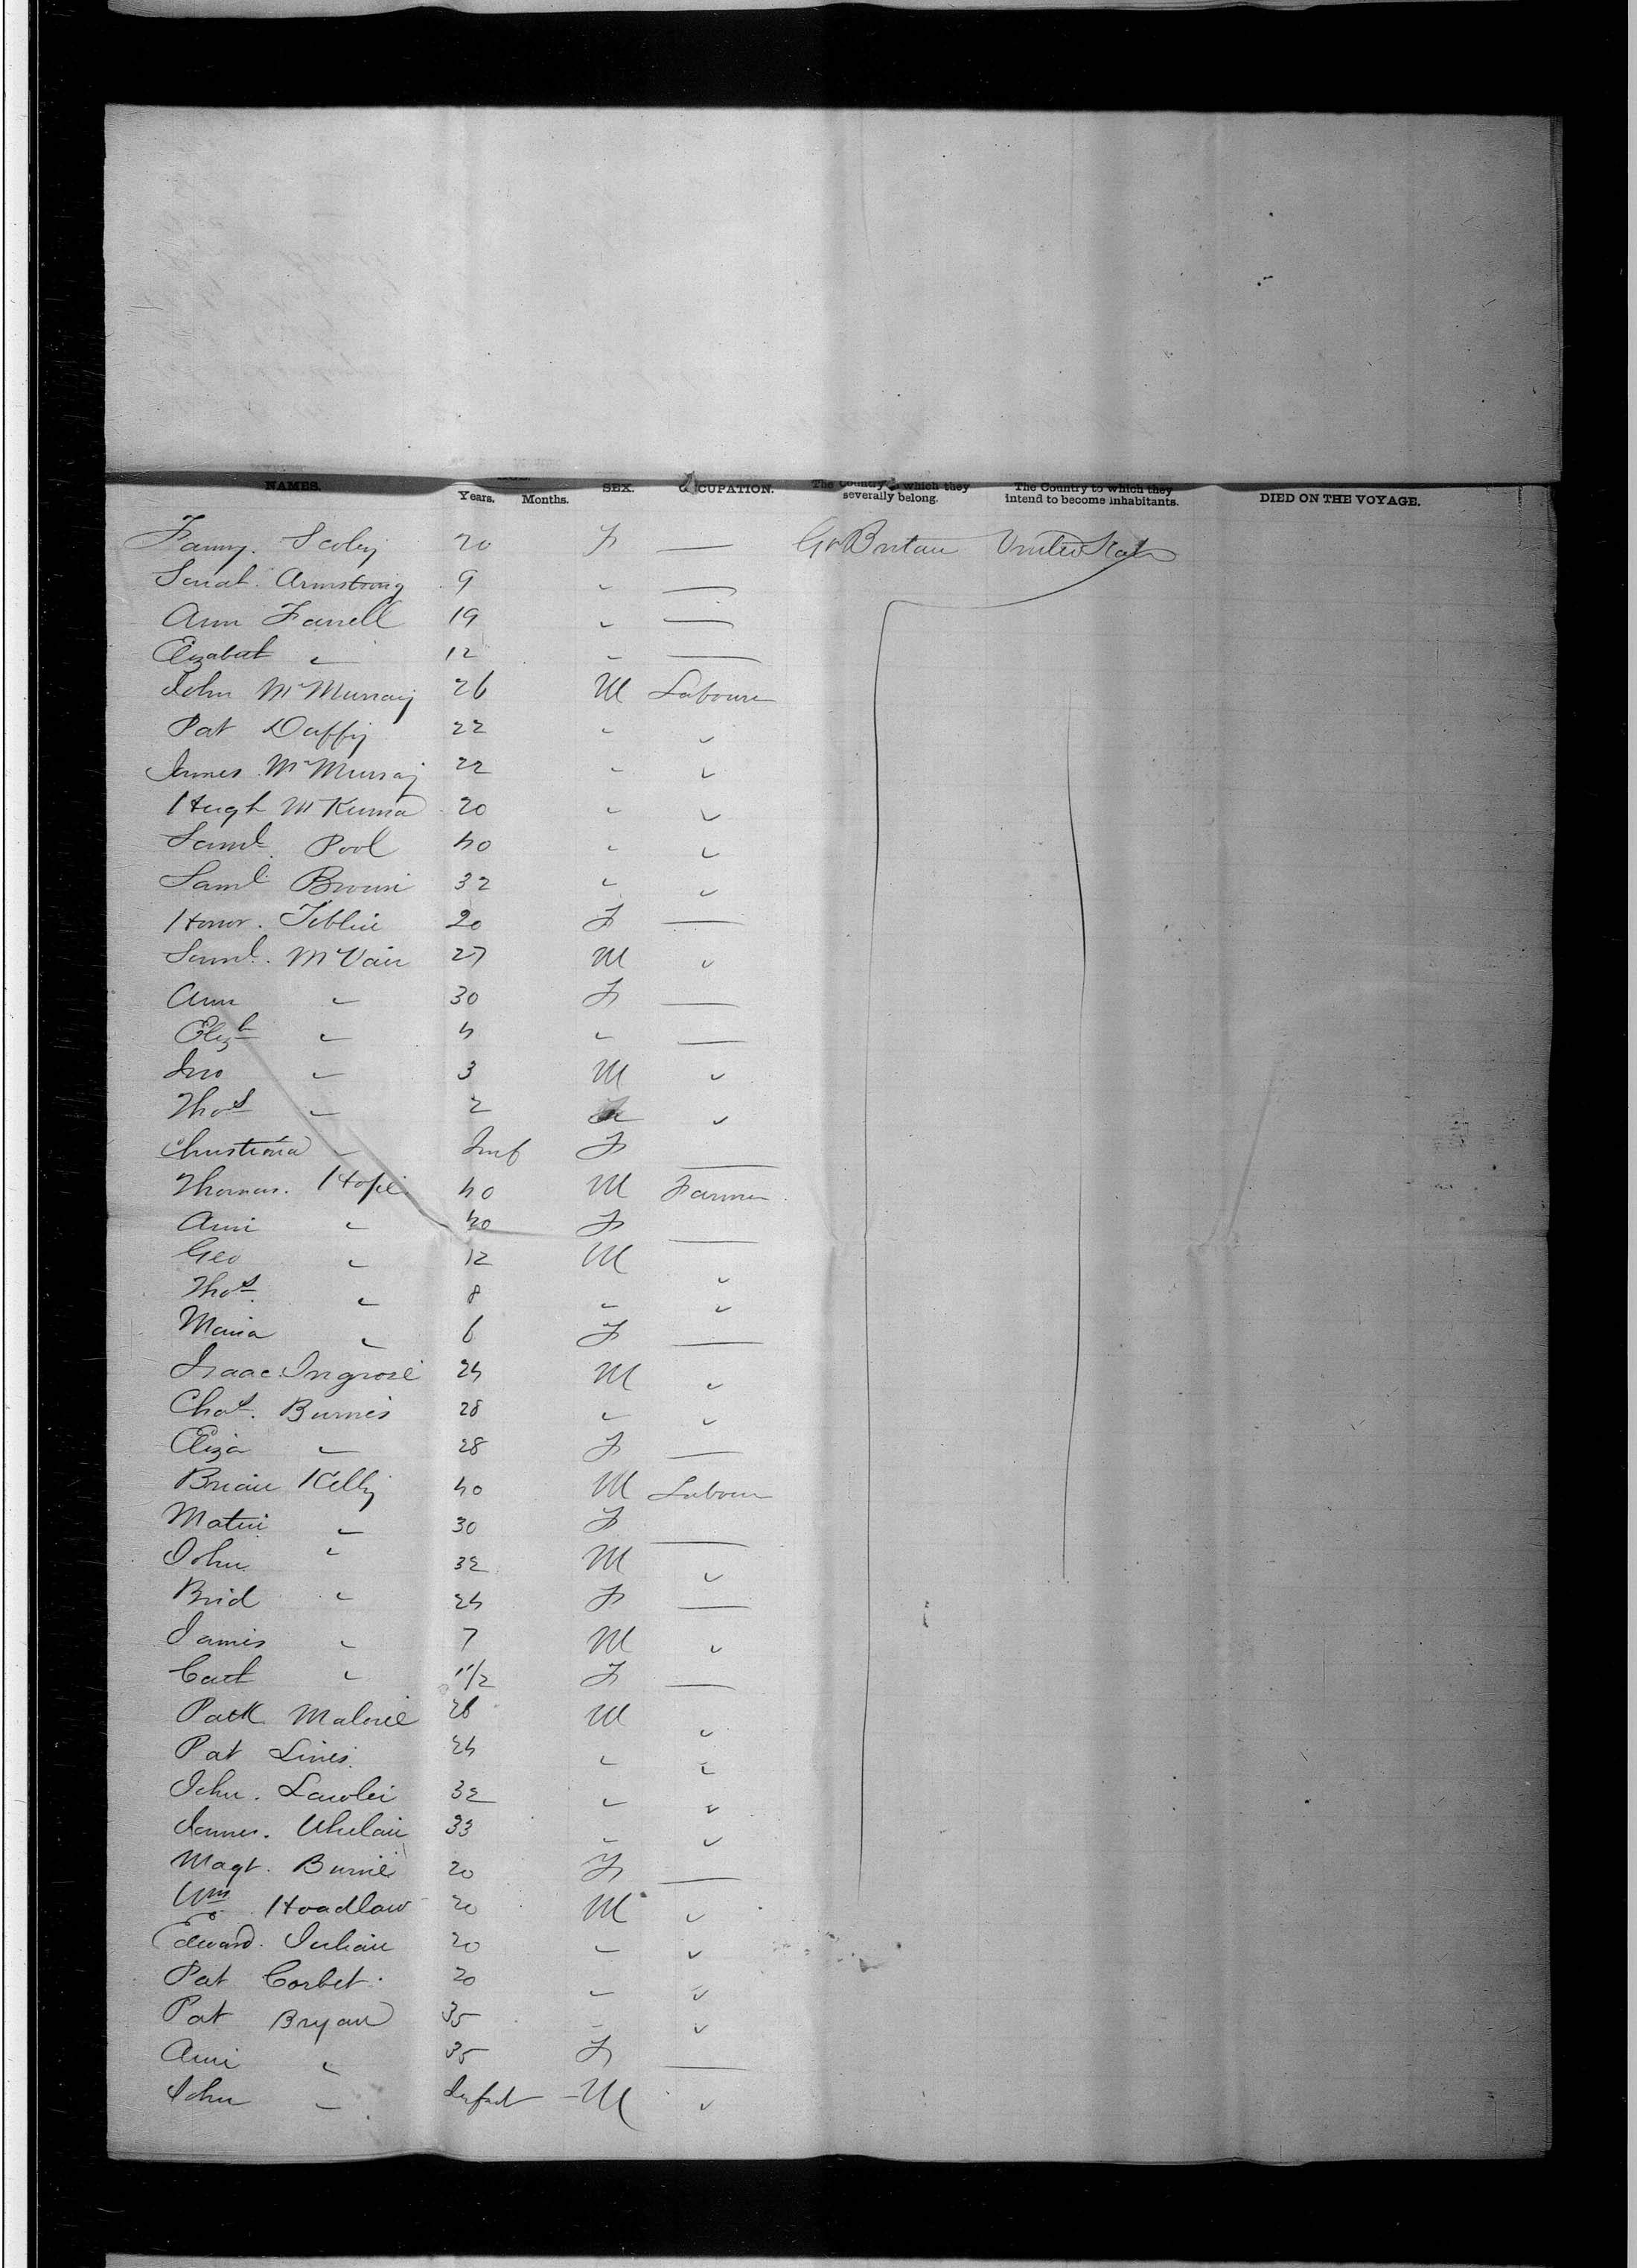 NAMES. Years. Months. SEX. OCCUPATION. The Country to which they severally belong. The Country to which they intend to become inhabitants. DIED ON THE VOYAGE.
Fanny. Scoley 20 F — Gr Britain United States
Sarah Armstrong 9 " —
Ann Farrell 19 " —
Elizabeth " 12 " —
John McMurray 26 M Labourer
Pat Duffy 22 " "
James McMurray 22 " "
Hugh McKenna 20 " "
Saml Pool 40 " "
Saml Brown 32 " "
Honor. 20 F —
Saml. McVain 27 M "
Ann " 30 F —
Elizh " 4 " —
Jno " 3 M "
Thos " 2 "
Christiana " Inf F —
Thomas. Hope 40 M Farmer
Ann " 40 F —
Geo " 12 M "
Thos. " 8 " "
Maria " 6 F —
Isaac Ingrose 24 M "
Chas. Burnes 28 " "
Eliza " 28 F —
Brian Kelly 40 M Labour
" 30 F —
John " 32 M "
Brid " 24 F —
James " 7 M "
Cath " 11/2 F —
Patk Malone 26 M "
Pat Lines. 24 " "
John. Lawler 32 " "
James. Whelan 33 " "
Magt. Burne 20 F —
Wm Hoadlaw 20 M "
Edward. Julian 20 " "
Pat Corbet. 20 " "
Pat Bryan 35 " "
Ann " 35 F —
John " Infant M "